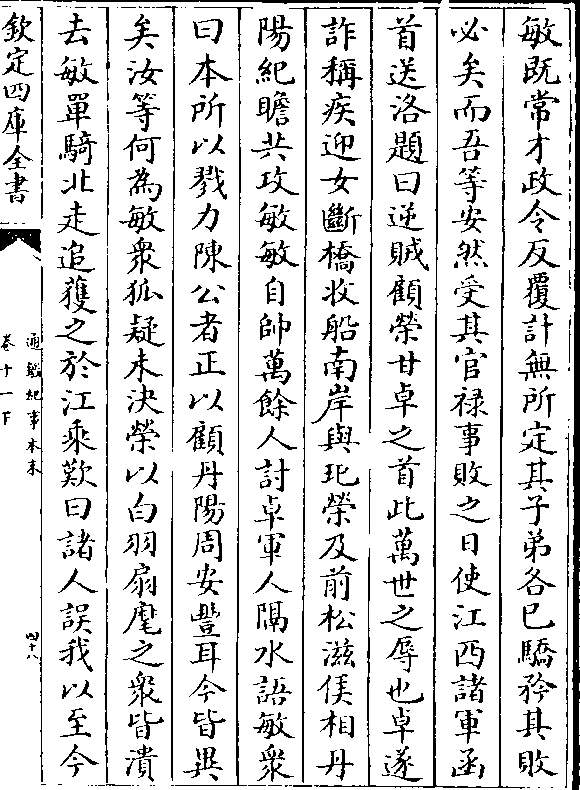 敏既常才政令反覆計無所定其子弟各已驕矜其敗
必矣而吾等安然受其官禄事敗之日使江西諸軍函
首送洛題曰逆賊顧榮甘卓之首此萬世之辱也卓遂
詐稱疾迎女斷橋收船南岸與玘榮及前松滋侯相丹
陽紀瞻共攻敏敏自帥萬餘人討卓軍人隔水語敏衆
曰本所以戮力陳公者正以顧丹陽周安豐耳今皆異
矣汝等何為敏衆狐疑未決榮以白羽扇麾之衆皆潰
去敏單騎北走追獲之於江乘歎曰諸人誤我以至今
欽定四庫全書
通鑑紀事本末
卷十一下
四十八